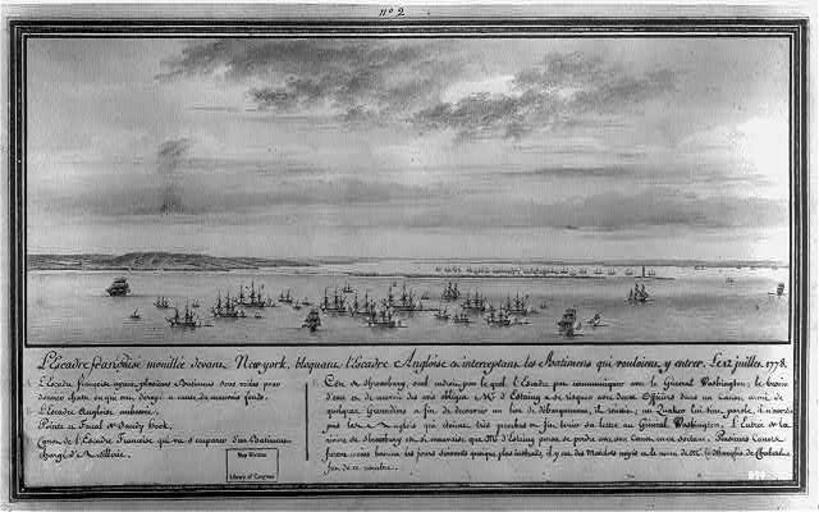 nº 2
L'Escadre françoise mouillée devant New-york, bloquant l'Escadre Angloise et interceptant les Batimens qui vouloient y entrer. Le 12 juillet 1778.
L'Escadre françoise ayant plusieurs Batimens sous voiles pour
donner chasse
L'Escadre Angloise
Pointe et Fanal de Sandy hook.
Canot de l'Escadre Françoise qui va s'emparer d'un Batiment
chargé d'Artillerie.
seul endroit par lequel l'Escadre put communiquer avec le Général Washington; le besoin
d'eau et de Mr. d'Estaing a se risquer avec deux Officiers dans un Canot armé de
quelques Grenadiers a fin de decouvrir un lieu de débarquement, il reussit; un Quaker lui tint parole,
pas les Anglois qui étoient très proches et fit tenir sa lettre au Général Washington; L'Entrée de la
riviere de est si mauvaise que Mr. d'Estaing pensa se perdre avec son Canot en sortant. Plusieurs Canots
les jours suivants quoique plus instruits, il y eut des Matelots noyés et le neveu de Mr. le Marquis de
fut de ce nombre.
Map Division
Library of Congress